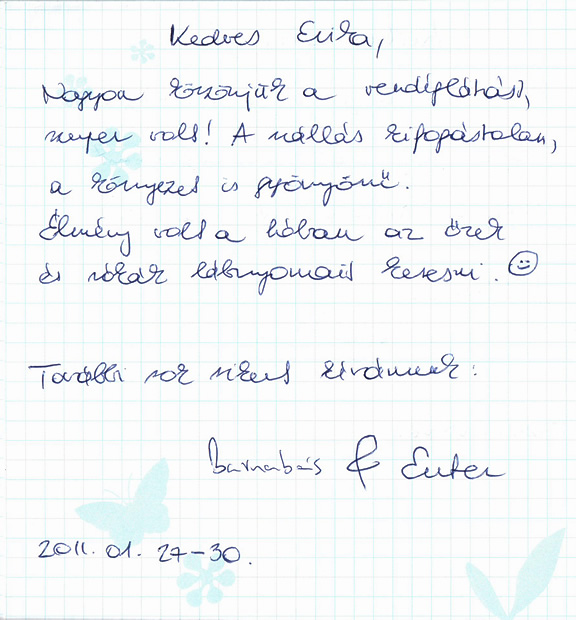 Kedves Erika,
Nagyon köszönjük a vendéglátást,
szuper volt! A szállás kifogástalan,
a környezet is gyönyörű.
Élmény volt a hóban az őzek
és rókák lábnyomait keresni. ☺
További sok sikert kívánunk:
Barnabás & Eszter
2011. 01. 27-30.